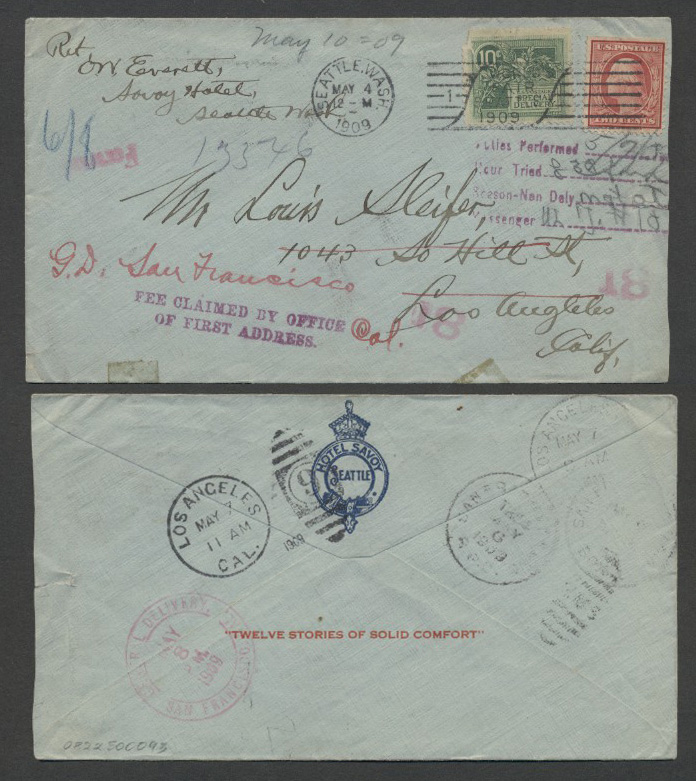 May 10-09
Ret
OW Everett,
Savoy Hotel,
Seattle Wash
SEATTLE, WASH.
MAY 4
12-M
1909
10
SPECIAL
DELIVERY
1909
U.S. POSTAGE
2 CENTS 2
6/8
13346
Performed
Hour Tried
Reason-Non Dely
Messenger
Mr Louis Sleifer,
1043 So Hill St,
G.D. San Francisco
Los Angeles
FEE CLAIMED BY OFFICE
OF FIRST ADDRESS.
Cal.
Calif,
HOTEL SAVOY
SEATTLE
LOS ANGELES
MAY 7
11 AM
CAL.
1909
LOS ANGELES
MAY 7
AM
1909
"TWELVE STORIES OF SOLID COMFORT"
DELIVERY
MAY
8
1909
SAN FRANCISCO
0822500093